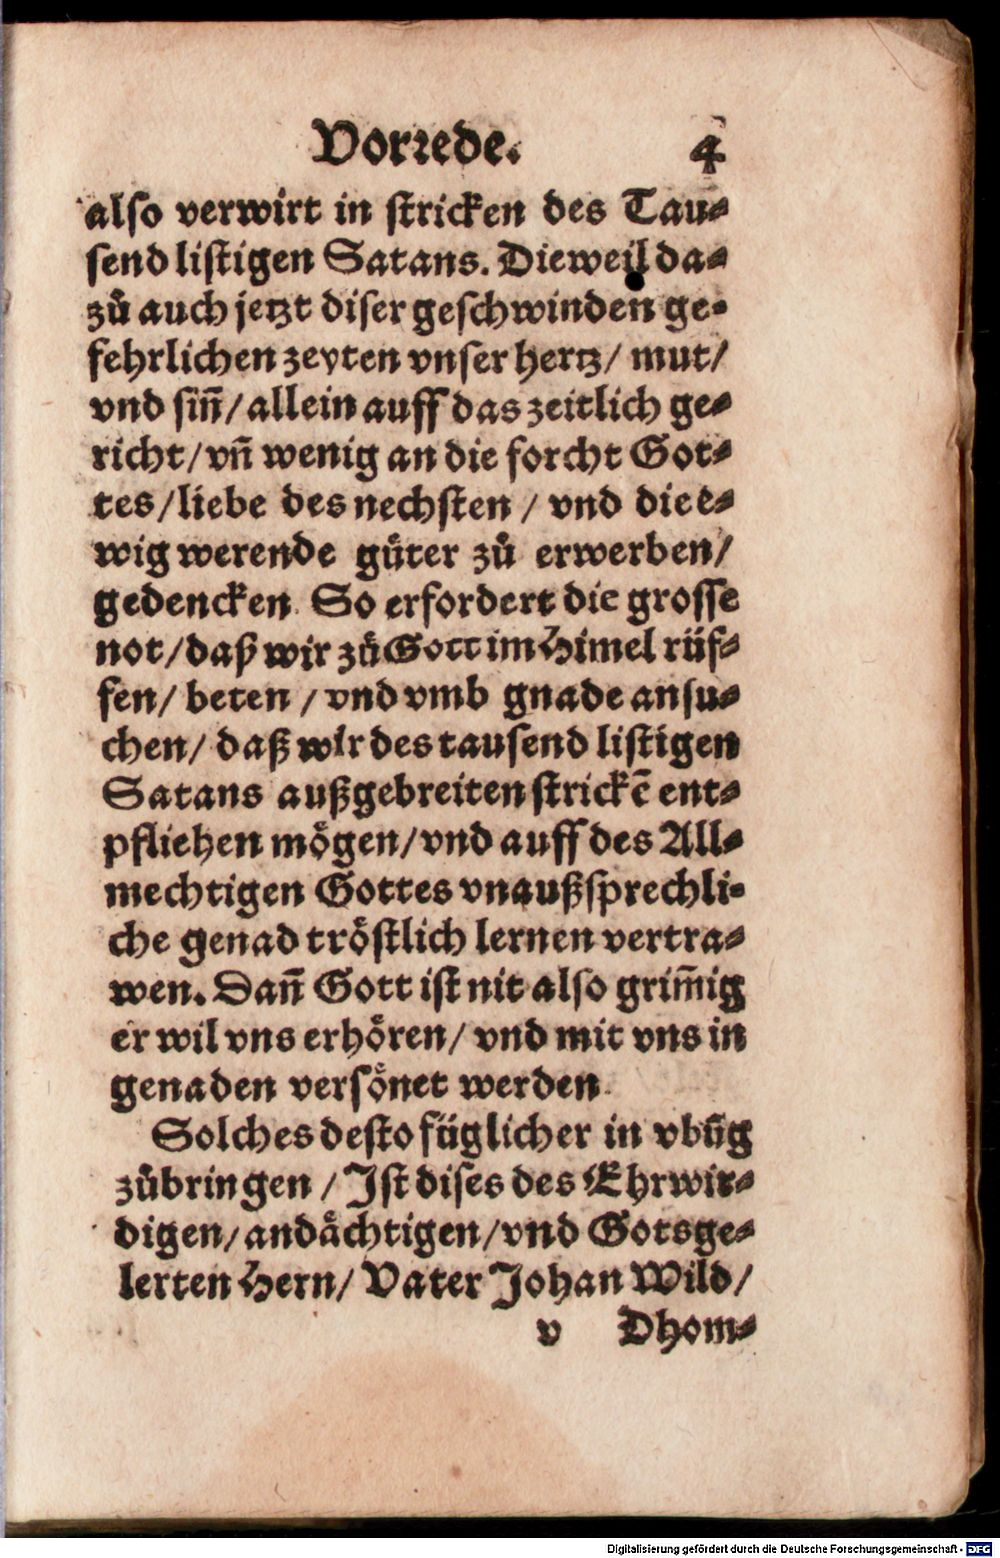 Vorrede. 4
also verwirt in stricken des Tau⸗
send listigen Satans. Dieweil da⸗
zů auch jetzt diser geschwinden ge⸗
fehrlichen zeyten vnser hertz/ mut/
vnd siñ/ allein auff das zeitlich ge⸗
richt/ vñ wenig an die forcht Got⸗
tes/ liebe des nechsten / vnd die e⸗
wig werende gůter zů erwerben/
gedencken. So erfordert die grosse
not/ daß wir zů Gott im Himel růf⸗
fen/ beten / vnd vmb gnade ansu⸗
chen/ daß wir des tausend listigen
Satans außgebreiten strickē ent⸗
pfliehen mögen/ vnd auff des All⸗
mechtigen Gottes vnaußsprechli⸗
che genad tröstlich lernen vertra⸗
wen. Dañ Gott ist nit also grim̄ig
er wil vns erhören/ vnd mit vns in
genaden versönet werden.
Solches desto füglicher in vbūg
zůbringen / Ist dises des Ehrwir⸗
digen/ andächtigen/ vnd Gotsge⸗
lerten Hern/ Vater Johan Wild/
v Dhom⸗
Digitalisierung gefördert durch die Deutsche Forschungsgemeinschaft - DFG